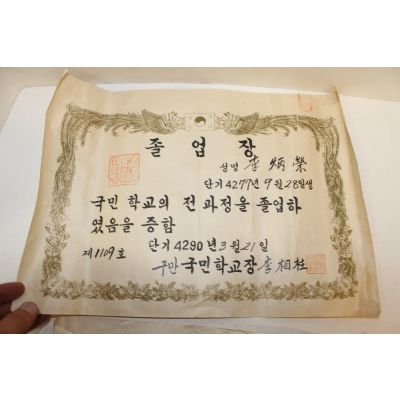 졸업장
성명 李炳榮
단기 4277년 9월 28일생
국민 학교의 전 과정을 졸업하
였음을 증함
단기 4290년 3월 21일
제1109호
구만 국민학교장 李相柱